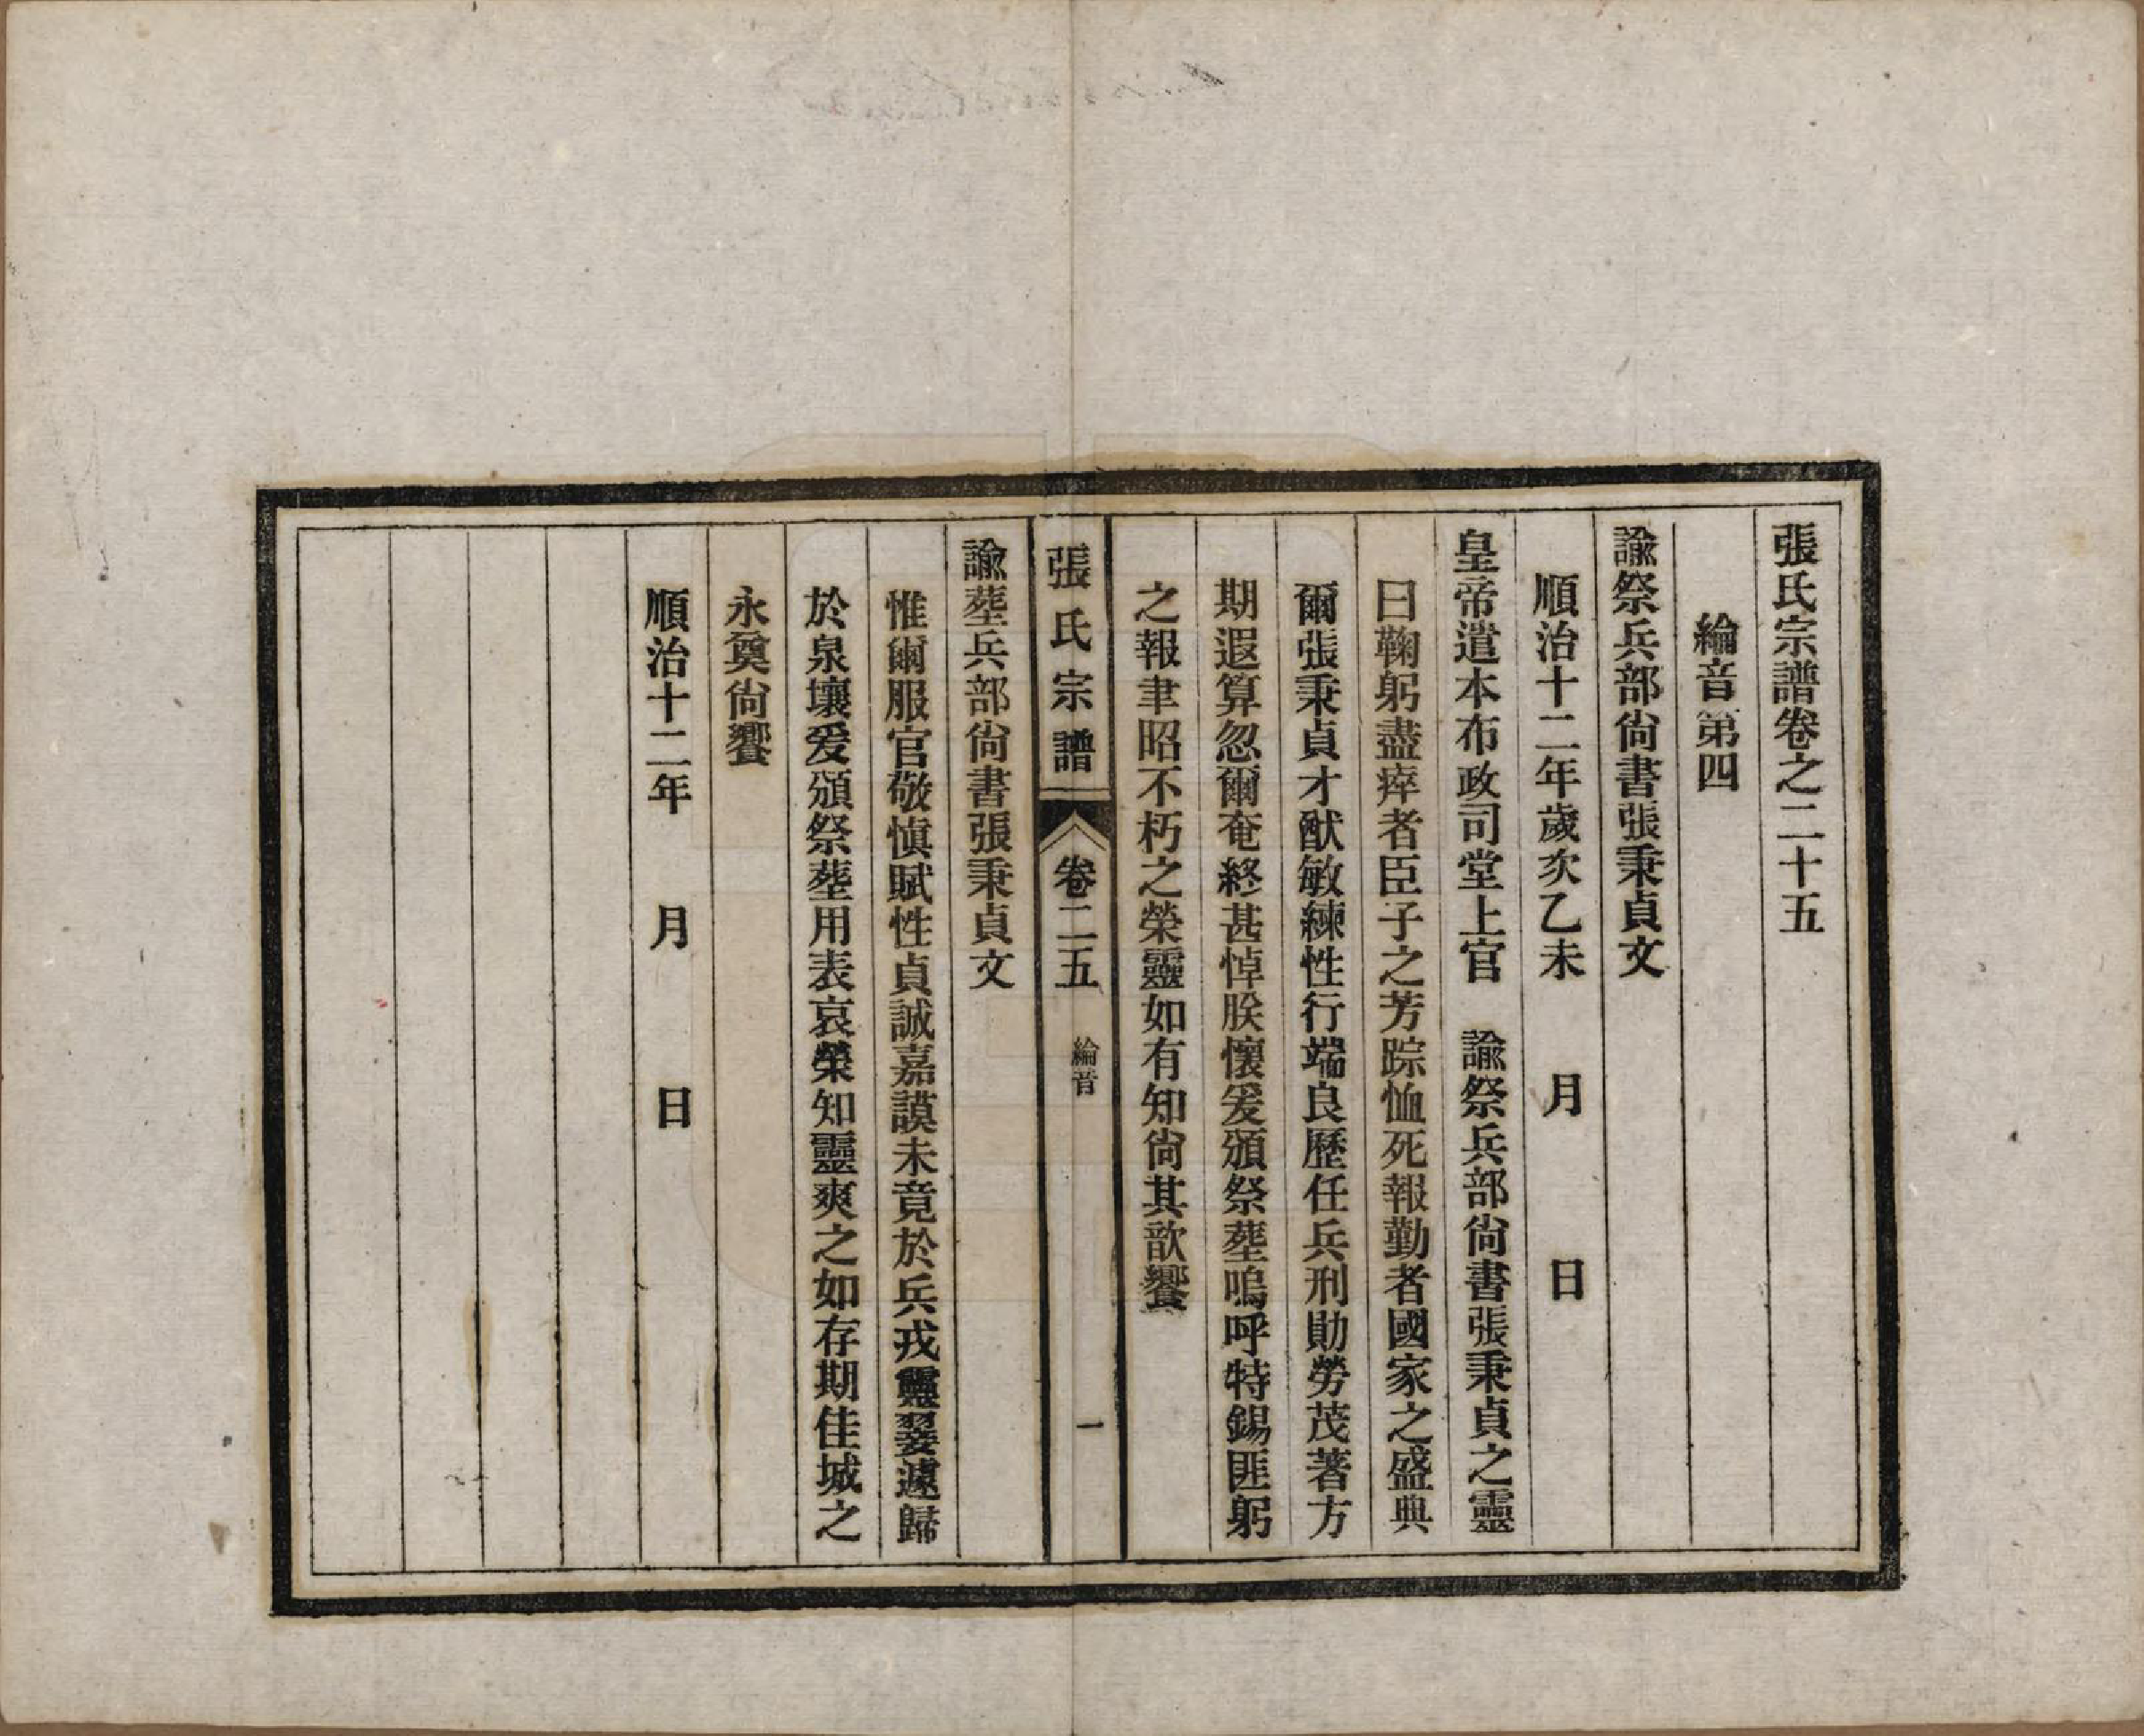 張氏宗譜卷之二十五
綸音第四
諭祭兵部尙書張秉貞文
順治十二年歲次乙未　月　日
皇帝遣本布政司堂上官　諭祭兵部尙書張秉貞之靈
曰鞠躬盡瘁者臣子之芳踪恤死報勤者國家之盛典
爾張秉貞才猷敏練性行端良歷任兵刑勛勞茂著方
期遐算忽爾奄終甚悼朕懷爰頒祭塟嗚呼特錫匪躬
之報聿昭不朽之榮靈如有知尙其歆饗
張氏宗譜
卷二五
綸音
一
諭塟兵部尙書張秉貞文
惟爾服官敬愼賦性貞誠嘉謨未竟於兵戎靈翣遽歸
於泉壤爰頒祭塟用表哀榮知靈爽之如存期佳城之
永奠尙饗
順治十二年　月　日